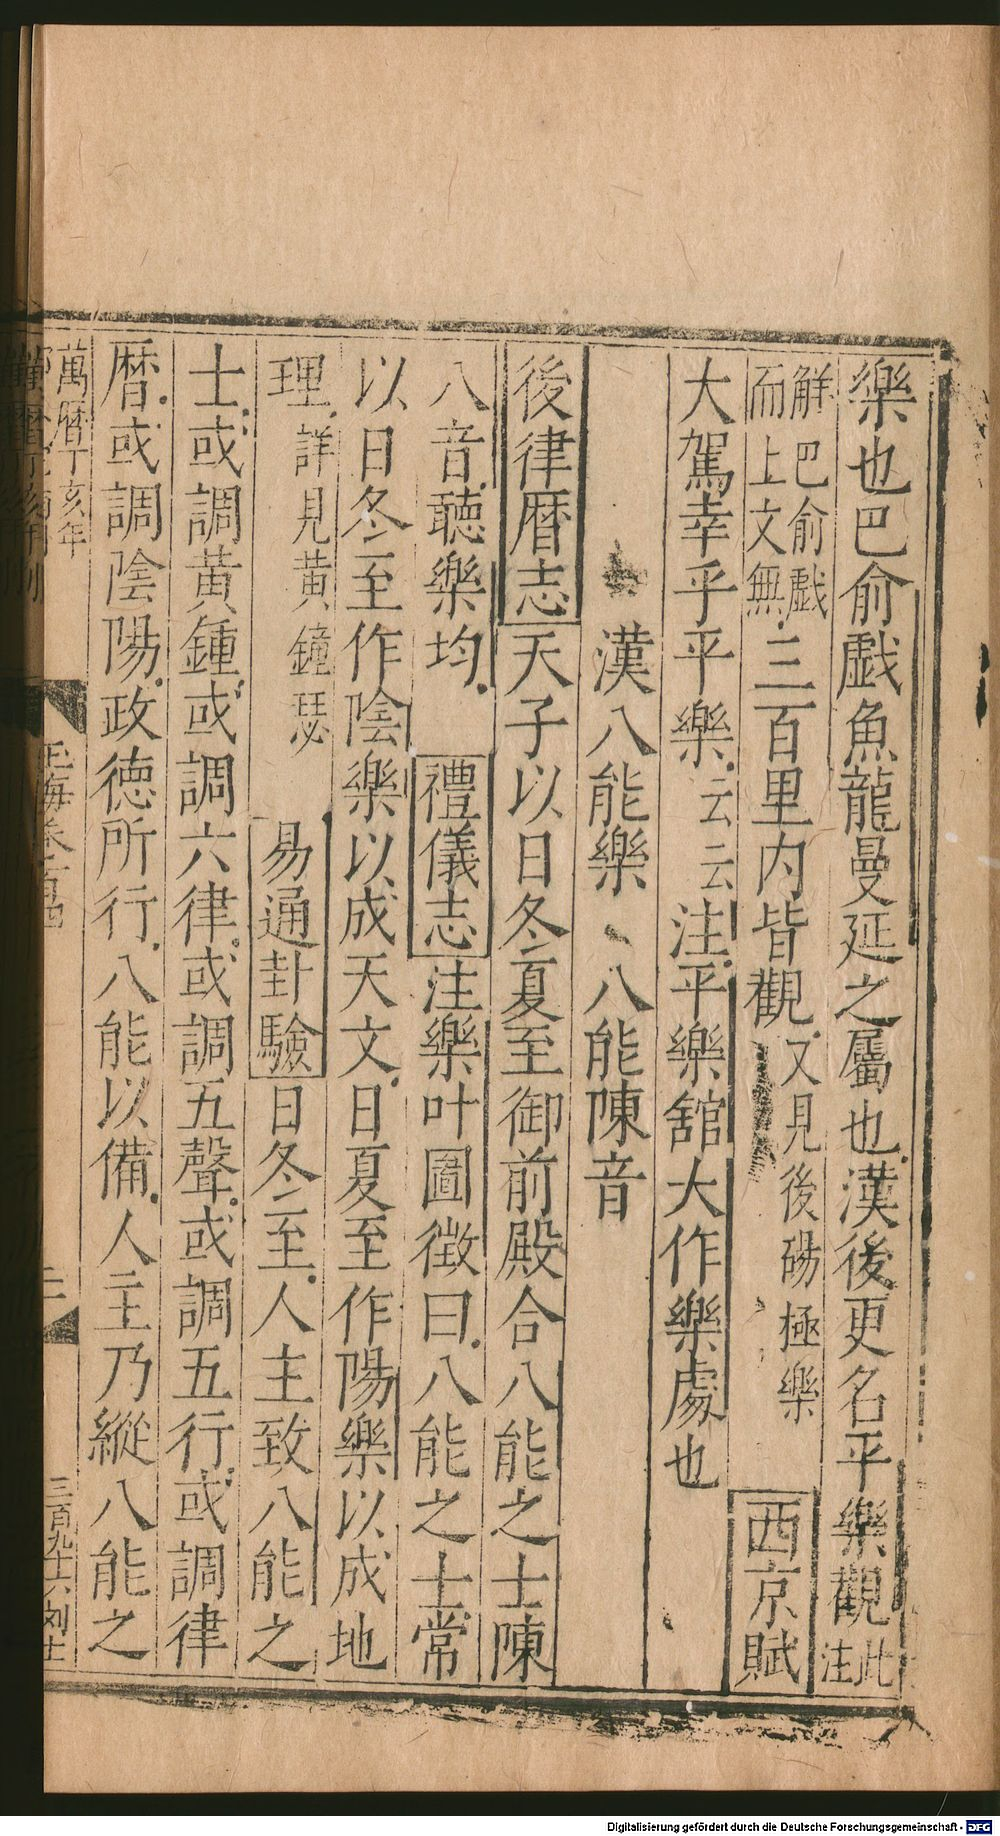 樂也巴俞戯魚龍曼延之屬也漢後更名平樂觀此注
觧巴俞戯而上文無三百里内皆觀又見後碭極樂 西京賦
大駕幸乎平樂云云注平樂舘大作樂處也
漢八能樂 八能陳音
後律暦志天子以日冬夏至御前殿合八能之士陳
八音聽樂均 禮儀志注樂叶圖徴曰八能之士常
以日冬至作隂樂以成天文日夏至作陽樂以成地
理詳見黄鐘瑟 易通卦驗日冬至人主致八能之
士或調黄鍾或調六律或調五聲或調五行或調律
暦或調隂陽政徳所行八能以備人主乃縱八能之
萬暦丁亥年 玉海卷一百四 三百九十六刘士
Digitalisierung gefördert durch die Deutsche Forschungsgemeinschaft - DFG